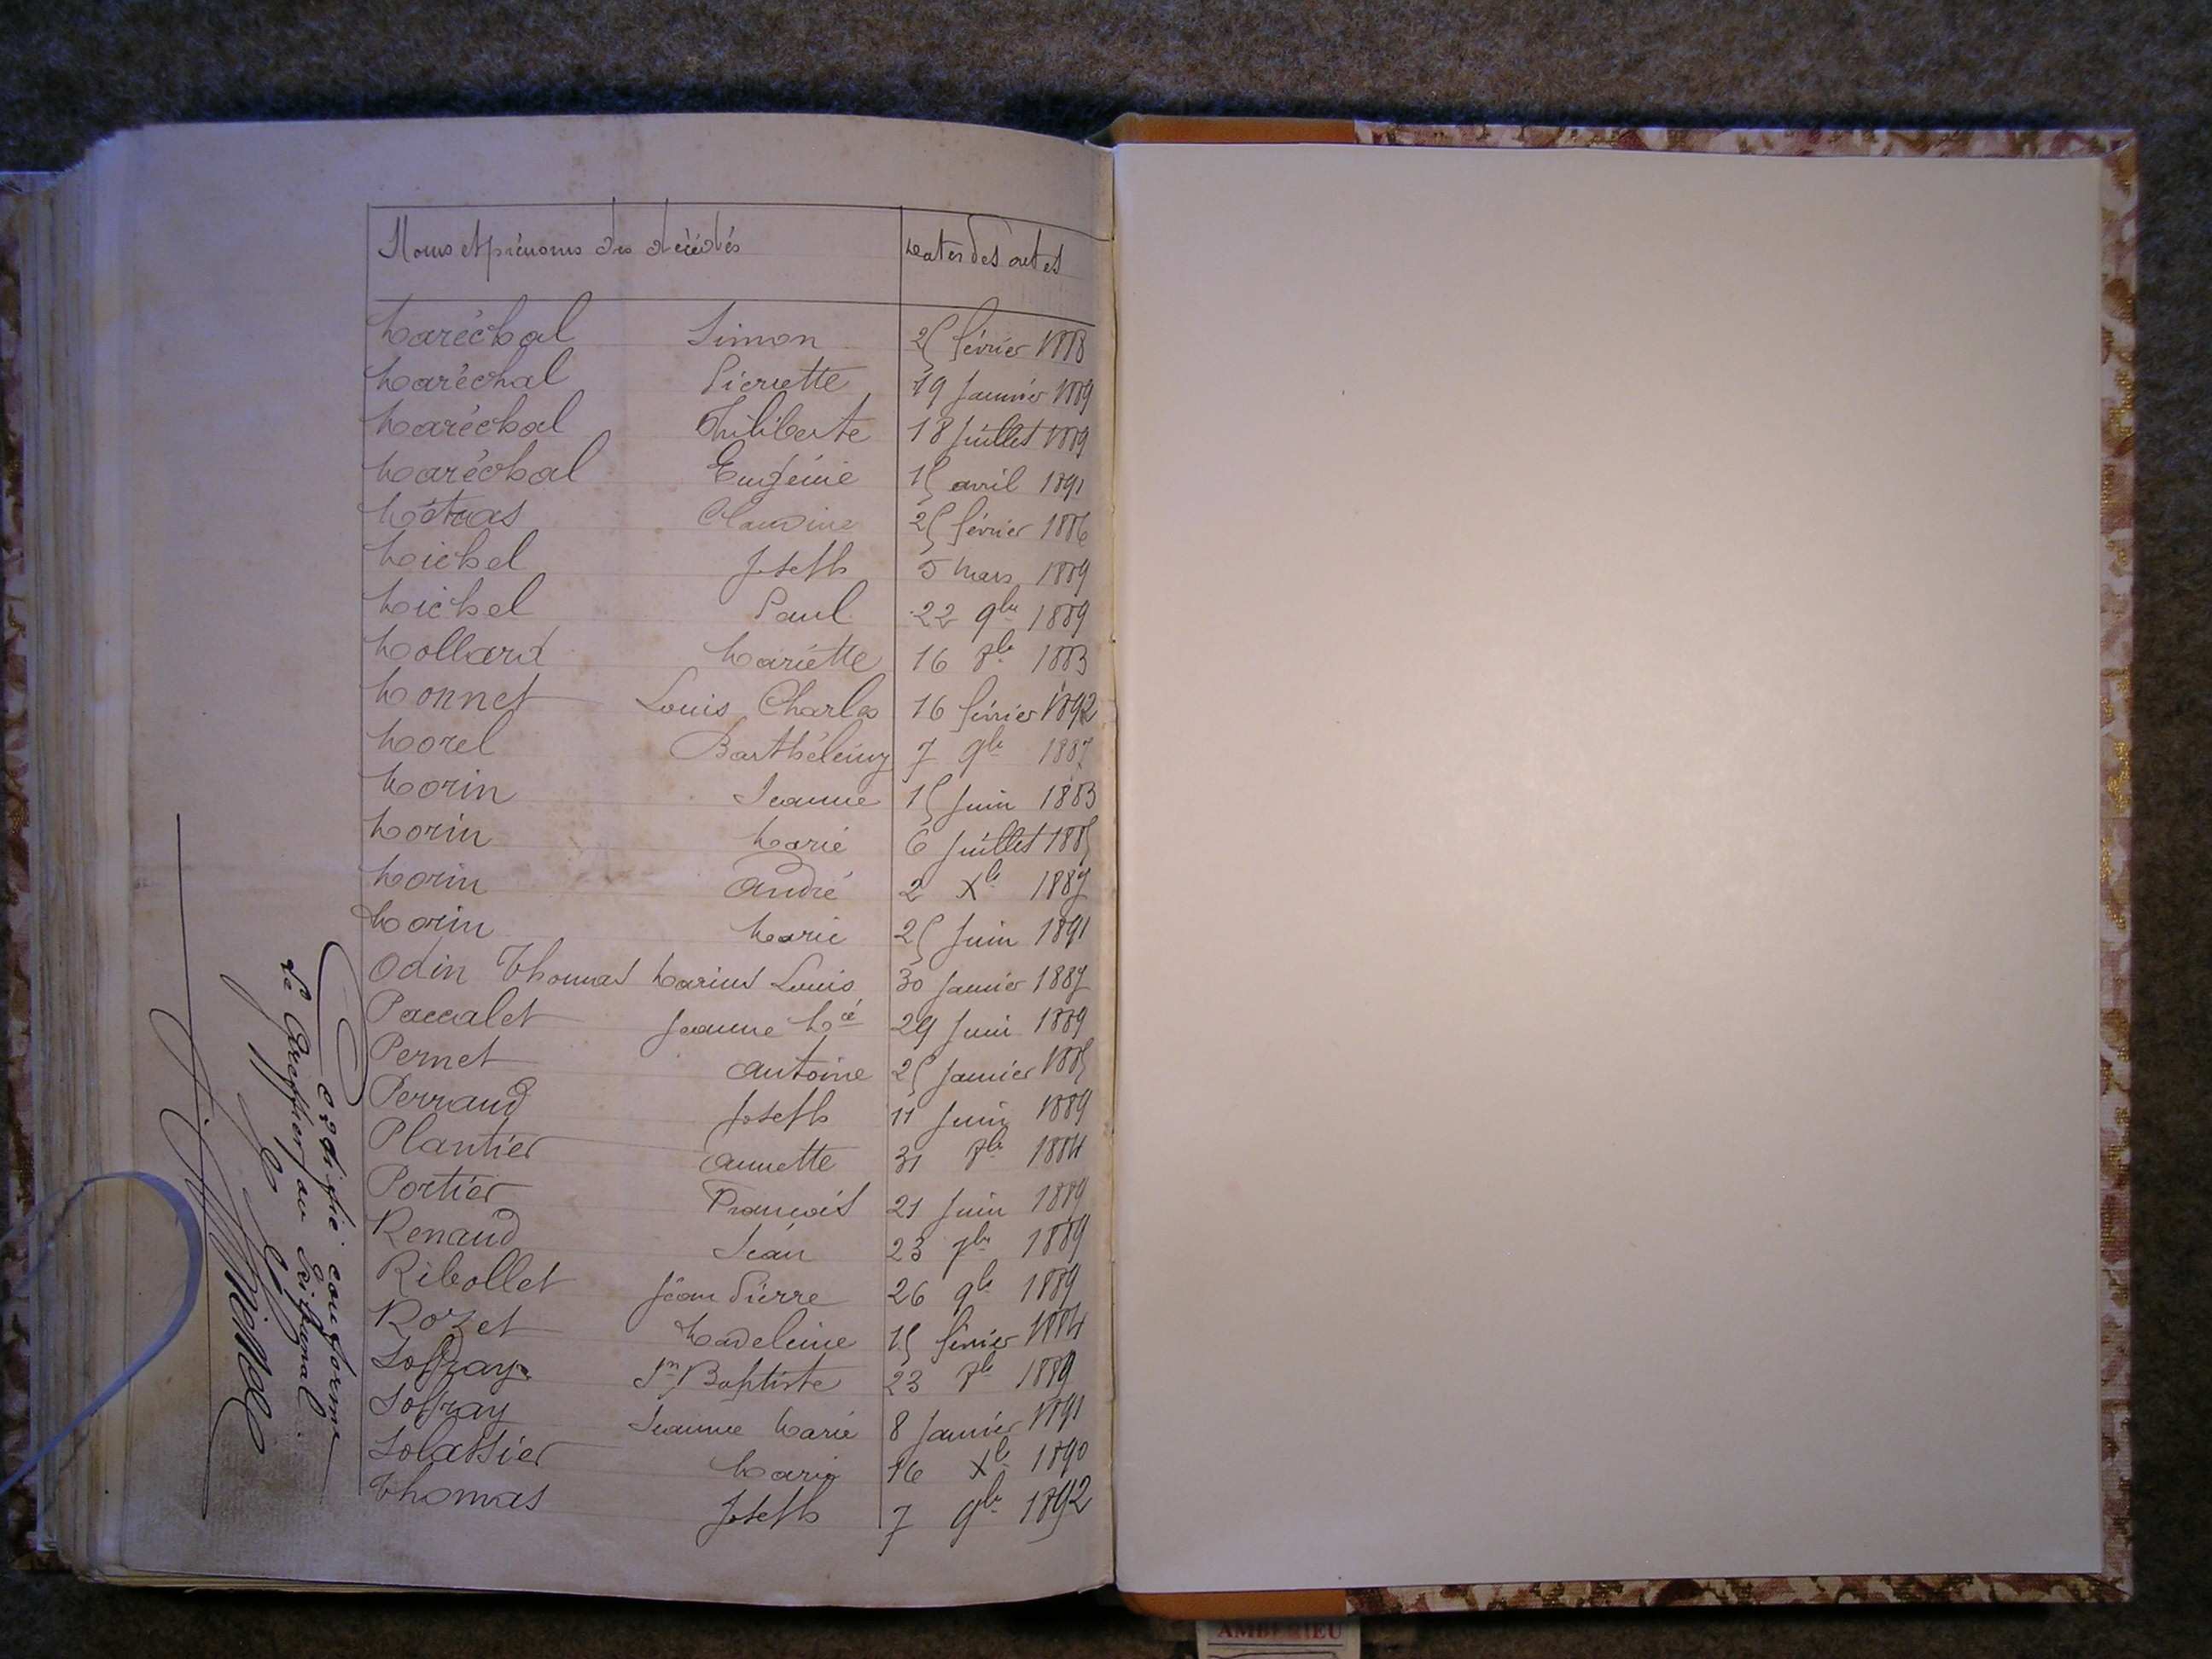 Noms et prénoms des décédés Dates des actes
Maréchal Simon 25 février 1888
Maréchal Pierrette 19 Janvier 1889
Maréchal Philiberte 18 Juillet 1889
Maréchal Eugénie 15 avril 1891
Métras Claudine 25 février 1886
Michel Joseph 5 Mars 1889
Michel Paul 22 9bre 1889
Mollard Mariette 16 8bre 1883
Monnet Louis Charles 16 février 1892
Morel Barthélemy 7 9bre 1887
Morin Jeanne 15 Juin 1883
Morin Marie 6 Juillet 1885
Morin André 2 Xbre 1887
Morin Marie 25 Juin 1891
Odin Thomas Marius Louis 30 Janvier 1887
Paccalet Jeanne Mie 29 Juin 1889
Pernet Antoine 25 Janvier 1885
Perraud Joseph 11 Juin 1889
Plantier Annette 31 8bre 1884
Portier François 21 Juin 1889
Renaud Jean 23 7bre 1889
Ribollet Jean Pierre 26 9bre 1889
Rozet Madeleine 15 février 1884
Soffray Jn Baptiste 23 8bre 1889
Soffray Jeanne Marie 8 Janvier 1891
Solassier Marie 16 Xbre 1890
Thomas Joseph 7 9bre 1892
Certifié conforme
Le Greffier au Tribunal
AMBERIEU